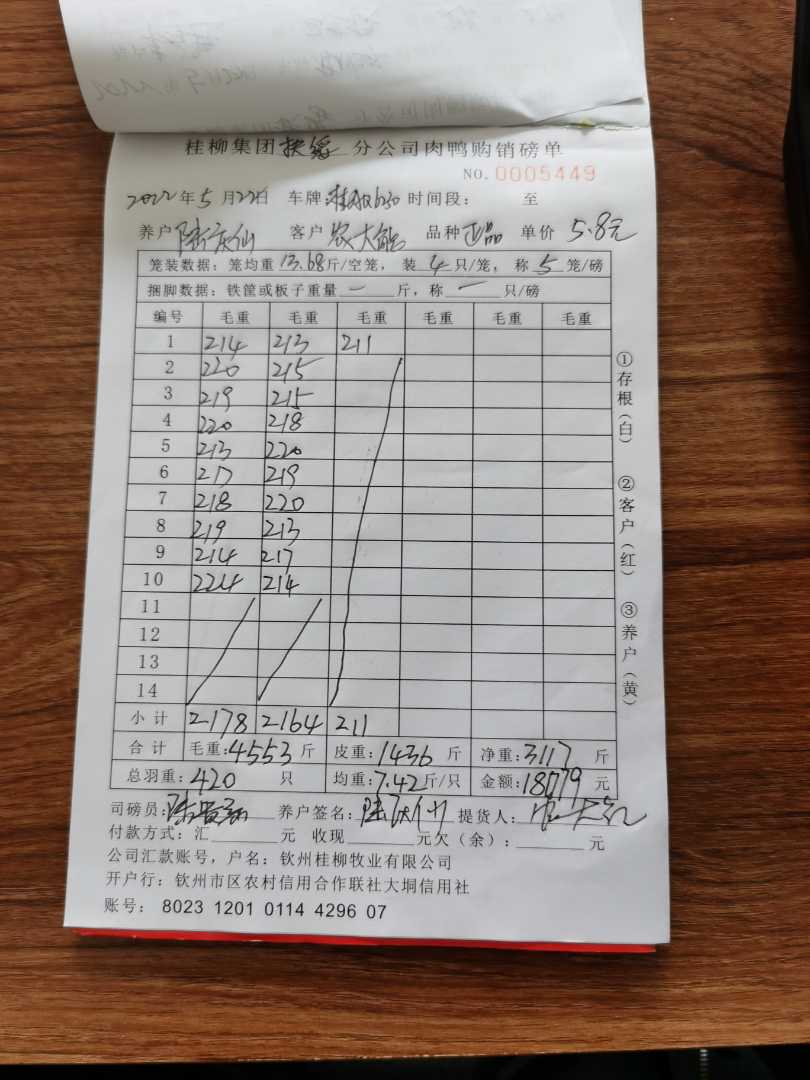 桂柳集团扶绥分公司肉鸭购销磅单
NO. 0005449
2022年5月22日 车牌: 时间段: 至
养户 陆庆仙 客户 农大能 品种 正品 单价 5.8元
笼装数据: 笼均重 13.68 斤/空笼, 装 4 只/笼, 称 5 笼/磅
捆脚数据: 铁筐或板子重量 一 斤, 称 一 只/磅
编号 毛重 毛重 毛重 毛重 毛重 毛重
1 214 213 211
2 220 215
3 219 215
4 220 218
5 213 220
6 217 219
7 218 220
8 219 213
9 214 217
10 224 214
11
12
13
14
小计 2178 2164 211
合计 毛重: 4553 斤 皮重: 1436 斤 净重: 3117 斤
总羽重: 420 只 均重: 7.42 斤/只 金额: 18079 元
司磅员: 养户签名: 陆庆仙 提货人:
付款方式: 汇 元 收现 元欠(余): 元
公司汇款账号, 户名: 钦州桂柳牧业有限公司
开户行: 钦州市区农村信用合作联社大垌信用社
账号: 8023 1201 0114 4296 07
①存根(白)
②客户(红)
③养户(黄)